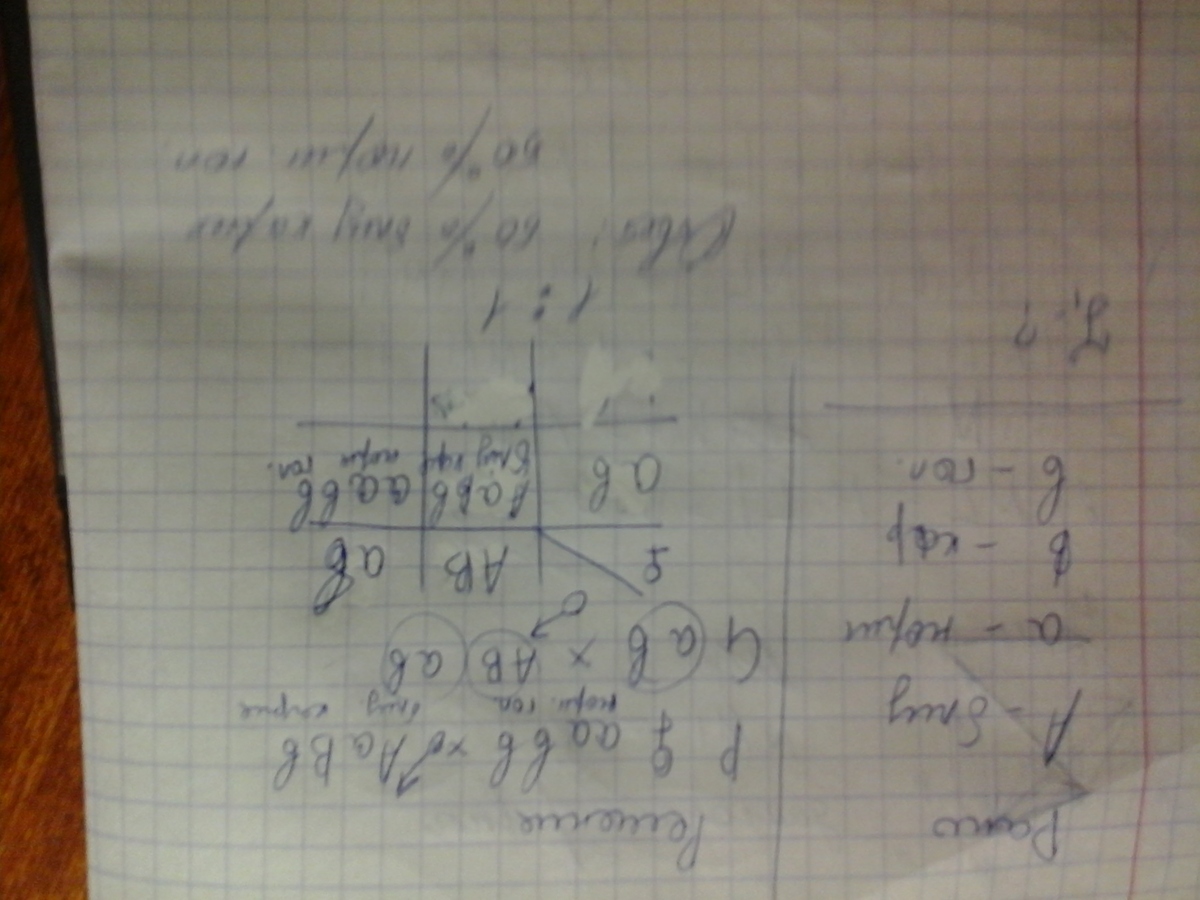 Дано
A - близ
a - норм
B - кар
b - гол.
F₁ - ?
Решение
P ♀ aabb × ♂ AaBb
норм. гол. близ карие
G ab × ♂ AB ab
♀ AB ab
ab AaBb aabb
близ кар норм гол.
1 : 1
Ответ: 50% близ карих
50% норм гол